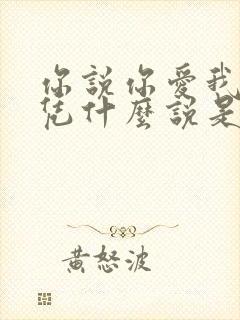 你說你愛我
凭什麼說是
黃怒波